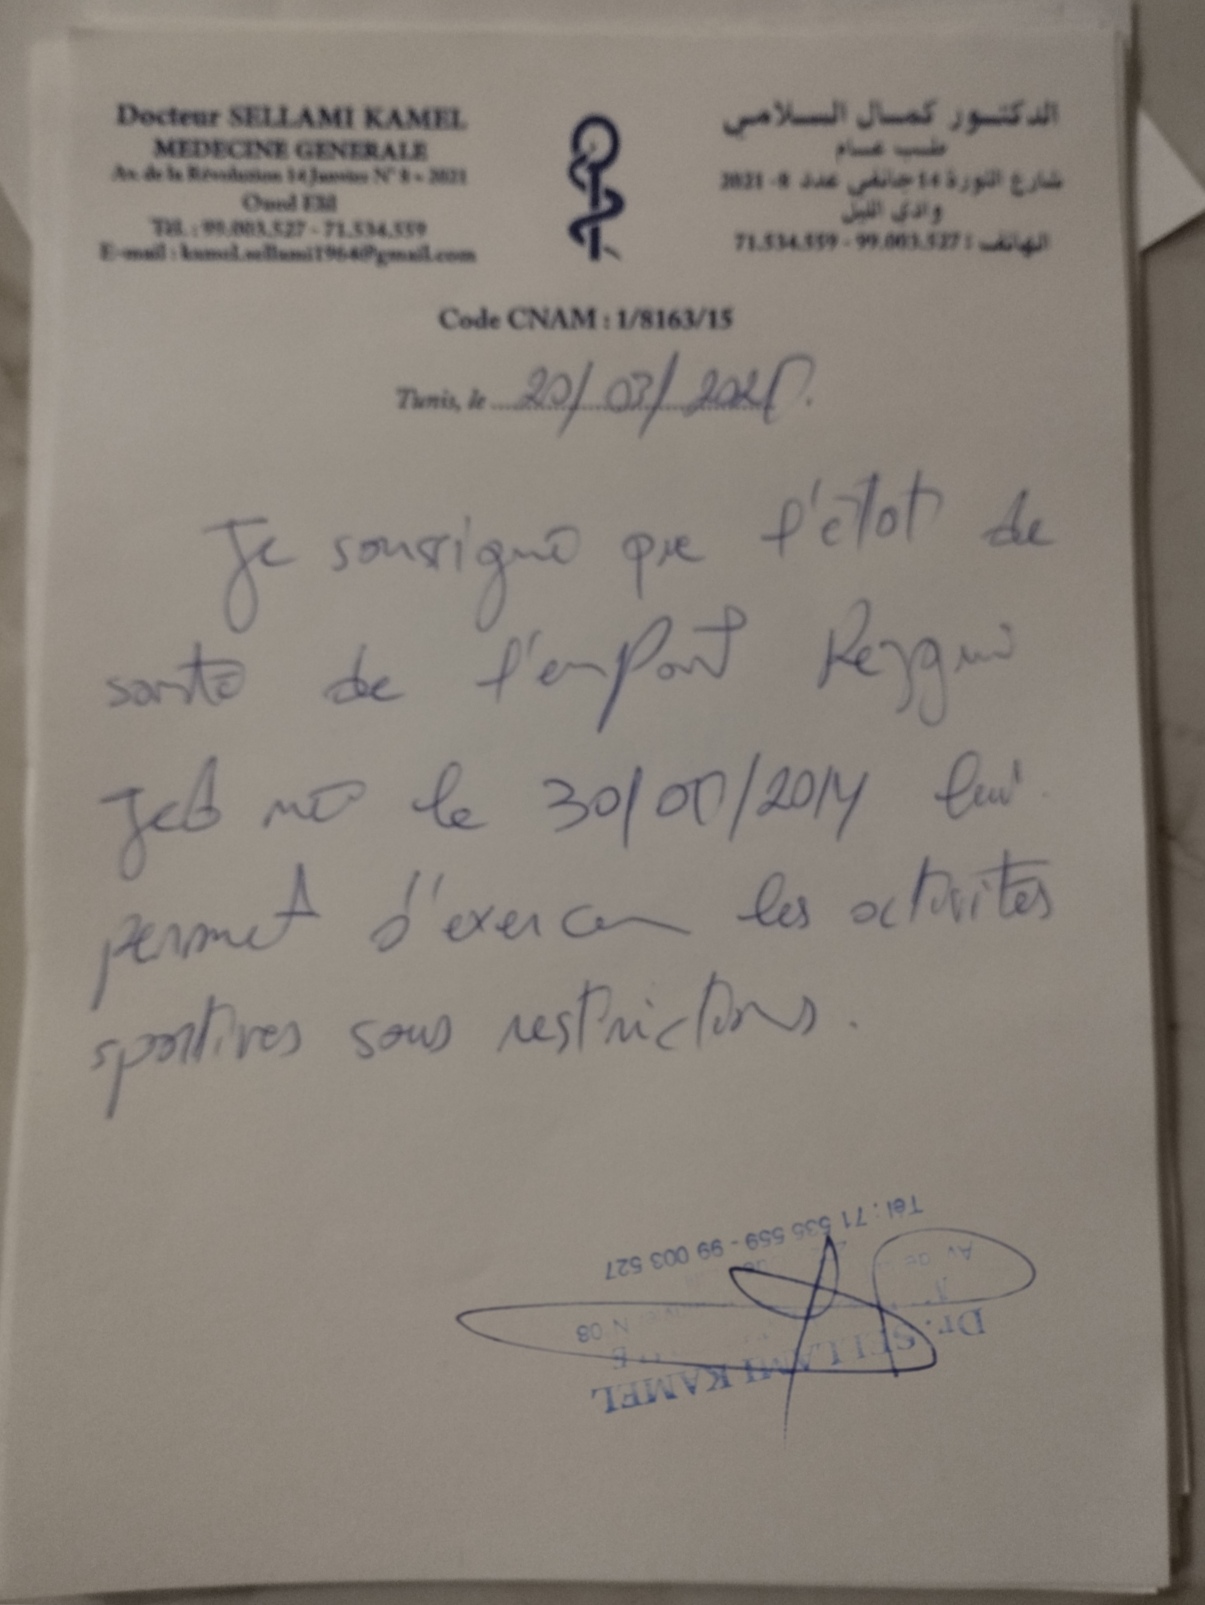 Docteur SELLAMI KAMEL
MEDECINE GENERALE
Av. de la Révolution 14 Janvier N° 8 - 2021
Oued Ellil
Tél. : 99.003.527 - 71.534.559
E-mail : kamel.sellami1964@gmail.com
الدكتور كمال السلامي
طب عام
شارع الثورة 14 جانفي عدد 8- 2021
وادي الليل
الهاتف : 99.003.527 - 71.534.559
Code CNAM : 1/8163/15
Tunis, le 20/03/
Je soussigné que l'état de
santé de l'enfant Rezgui
né le lui
permet d'exercer les activités
sportives sous restrictions.
Tél : 71 535 559 - 99 003 527
Av. de
N 08
Dr. SELLAMI KAMEL